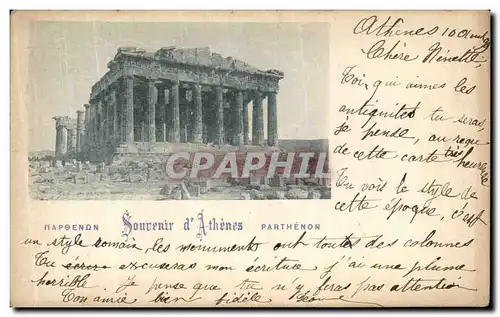 Athènes 10
Chère Ninette,
Toi, qui aimes les
antiquités tu seras,
Je pense, au reçu
de cette carte très heureuse
Tu vois le style de
cette époque, c'est
CPARAMA
ΠΑΡΘΕΝΩΝ Souvenir d'Athènes PARTHÉNON
un style romain, les monuments ont toutes des colonnes
Tu excuseras mon écriture j'ai une plume
horrible. Je pense que tu n'y feras pas attention
Ton amie bien fidèle